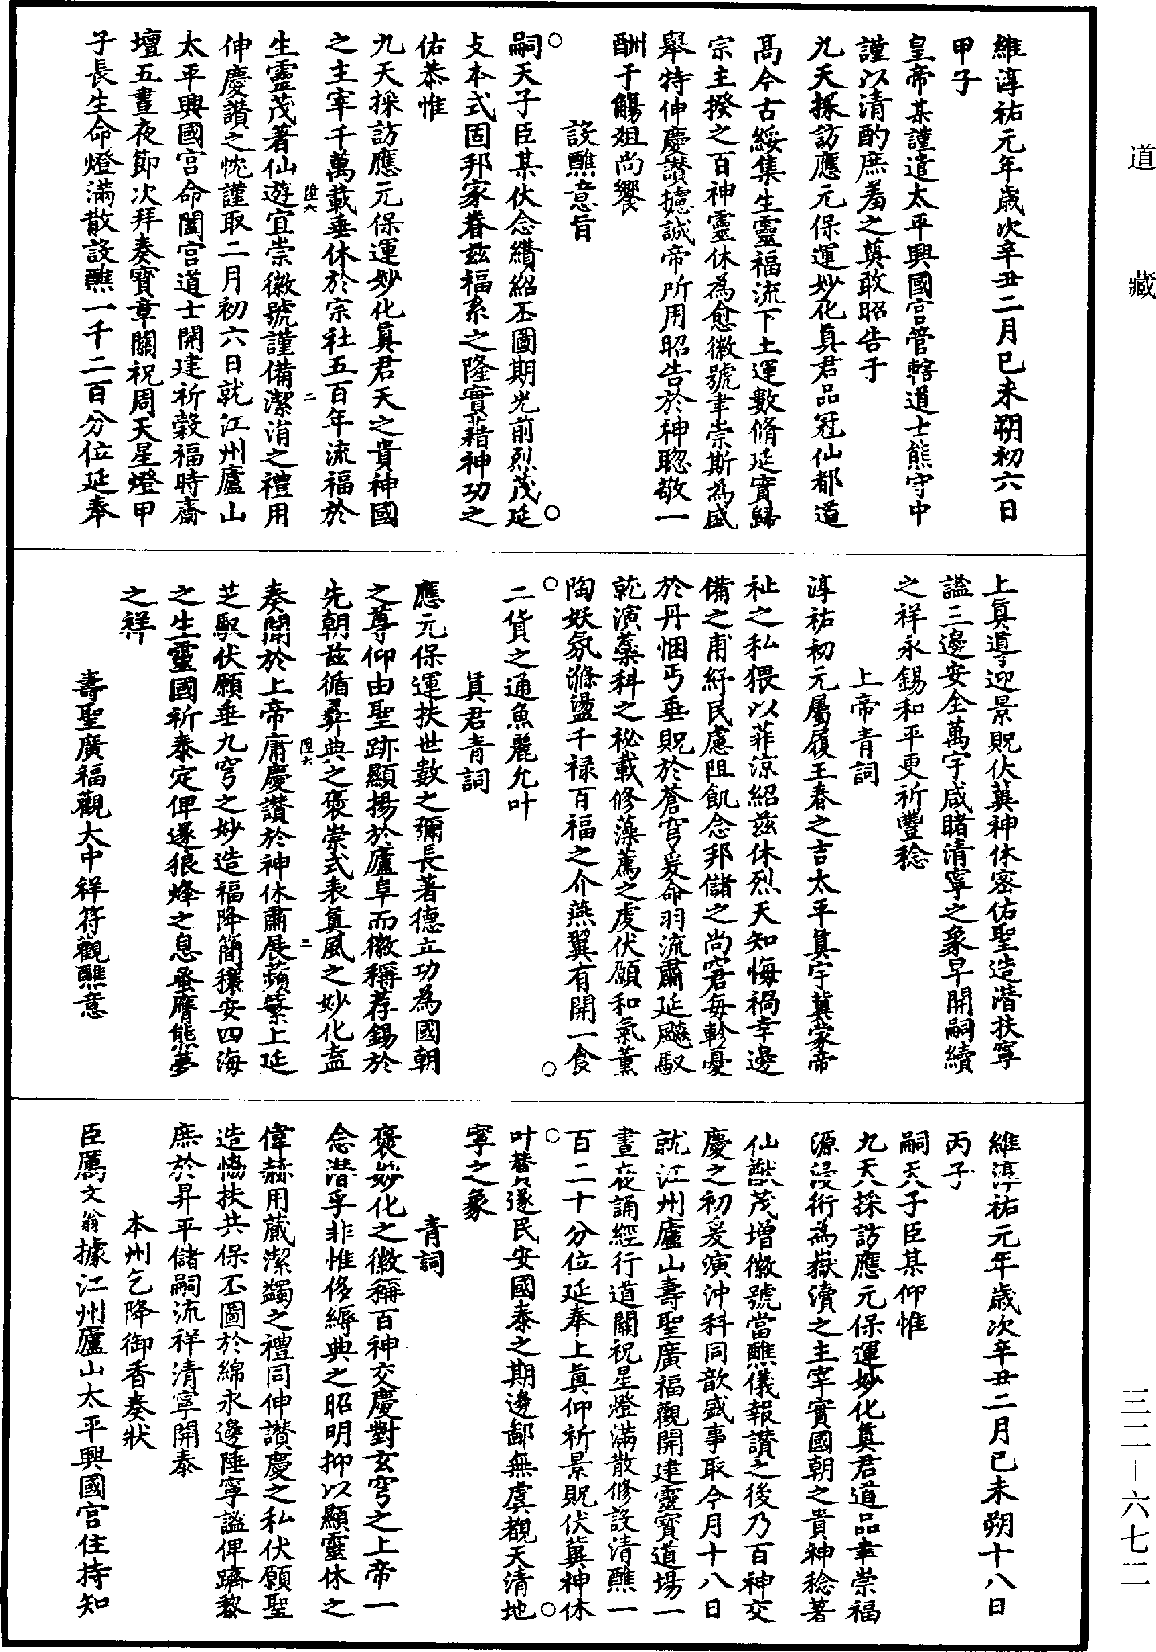 維淳祐元年歲次辛丑二月己未朔初六日
甲子
皇帝某謹遣太平興國宮管轄道士熊守中
謹以清酌庶羞之奠敢昭告于
九天採訪應元保運妙化真君品冠仙都道
高今古綏集生靈福流下土運數脩延實歸
宗主揆之百神靈休為愈徽號聿崇斯為盛
舉特伸慶讃攄誠帝所用昭告於神聦敬一
酬于觴俎尚饗
設醮意旨
嗣天子臣某伏念纉紹丕圖期光前烈茂延
支本式固邦家眷兹福系之隆實藉神功之
佑恭惟
九天採訪應元保運妙化真君天之貴神國
之主宰千萬載垂休於宗社五百年流福於
生靈茂著仙遊宜崇徽號謹備潔涓之禮用
伸慶讃之忱謹取二月初六日就江州廬山
太平興國宮命闔宮道士開建祈穀福時齋
壇五晝夜節次拜奏寳章關祝周天星燈甲
子長生命燈滿散設醮一千二百分位延奉
陞六
二
上真導迎景貺伏冀神休密佑聖造潛扶寧
謐三邊安全萬宇咸睹清寧之象早開嗣續
之祥永錫和平更祈豐稔
上帝青詞
淳祐初元屬履王春之吉太平真宇冀蒙帝
祉之私猥以菲涼紹兹休烈天知悔禍幸邊
備之甫紓民慮阻飢念邦儲之尚窘每軫憂
於丹悃丐垂貺於蒼穹爰命羽流肅延飈馭
乾演蘂科之祕載修藻薦之虔伏願和氣薰
陶妖氛滌盪千祿百福之介燕翼有開一食
二貨之通魚麗允叶
真君青詞
應元保運扶世數之彌長著德立功為國朝
之尊仰由聖跡顯揚於廬阜而徽稱荐錫於
先朝兹循彞典之褒崇式表真風之妙化盍
奏聞於上帝庸慶讃於神休肅展蘋蘩上延
芝馭伏願垂九穹之妙造福降簡穰安四海
之生靈國祈泰定俾遂狼烽之息亟膺熊夢
之祥
壽聖廣福觀大中祥符觀醮意
陞六
三
維淳祐元年歲次辛丑二月己未朔十八日
丙子
嗣天子臣某仰惟
九天採訪應元保運妙化真君道品聿崇福
源浸衍為嶽瀆之主宰實國朝之貴神稔著
仙猷茂增徽號當醮儀報讃之後乃百神交
慶之初爰演沖科同歆盛事取今月十八日
就江州廬山壽聖廣福觀開建靈寳道場一
晝夜誦經行道關祝星燈滿散修設清醮一
百二十分位延奉上真仰祈景貺伏冀神休
叶贊遂民安國泰之期邊鄙無虞覩天清地
寧之象
青詞
褒妙化之徽稱百神交慶對玄穹之上帝一
念潛孚非惟侈縟典之昭明抑以顯靈休之
偉赫用蕆潔蠲之禮同伸讃慶之私伏願聖
造恊扶共保丕圖於綿永邊陲寧謐俾躋黎
庶於昇平儲嗣流祥清寧開泰
本州乞降御香奏狀
臣厲文翁據江州廬山太平興國宮住持知
道藏
三二－六七二